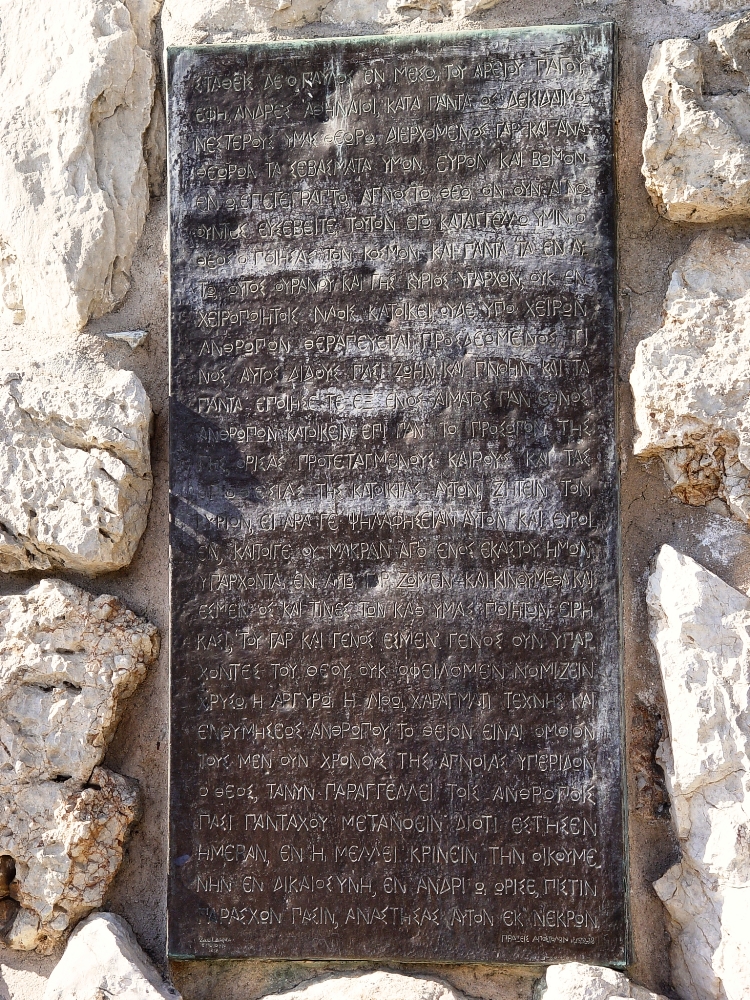 ΣΤΑΘΕΙΣ ΔΕ Ο ΠΑΥΛΟΣ ΕΝ ΜΕΣΩ ΤΟΥ ΑΡΕΙΟΥ ΠΑΓΟΥ,
ΕΦΗ, ΑΝΔΡΕΣ ΑΘΗΝΑΙΟΙ, ΚΑΤΑ ΠΑΝΤΑ ΩΣ ΔΕΙΣΙΔΑΙΜΟ
ΝΕΣΤΕΡΟΥΣ ΥΜΑΣ ΘΕΩΡΩ. ΔΙΕΡΧΟΜΕΝΟΣ ΓΑΡ ΚΑΙ ΑΝΑ
ΘΕΩΡΩΝ ΤΑ ΣΕΒΑΣΜΑΤΑ ΥΜΩΝ, ΕΥΡΟΝ ΚΑΙ ΒΩΜΟΝ
ΕΝ Ω ΕΠΕΓΕΓΡΑΠΤΟ, ΑΓΝΩΣΤΩ ΘΕΩ. ΟΝ ΟΥΝ ΑΓΝΟ
ΟΥΝΤΕΣ ΕΥΣΕΒΕΙΤΕ ΤΟΥΤΟΝ ΕΓΩ ΚΑΤΑΓΓΕΛΛΩ ΥΜΙΝ. Ο
ΘΕΟΣ Ο ΠΟΙΗΣΑΣ ΤΟΝ ΚΟΣΜΟΝ ΚΑΙ ΠΑΝΤΑ ΤΑ ΕΝ ΑΥ
ΤΩ, ΟΥΤΟΣ ΟΥΡΑΝΟΥ ΚΑΙ ΓΗΣ ΚΥΡΙΟΣ ΥΠΑΡΧΩΝ, ΟΥΚ ΕΝ
ΧΕΙΡΟΠΟΙΗΤΟΙΣ ΝΑΟΙΣ ΚΑΤΟΙΚΕΙ ΟΥΔΕ ΥΠΟ ΧΕΙΡΩΝ
ΑΝΘΡΩΠΩΝ ΘΕΡΑΠΕΥΕΤΑΙ ΠΡΟΣΔΕΟΜΕΝΟΣ ΤΙ
ΝΟΣ, ΑΥΤΟΣ ΔΙΔΟΥΣ ΠΑΣΙ ΖΩΗΝ ΚΑΙ ΠΝΟΗΝ ΚΑΙ ΤΑ
ΠΑΝΤΑ. ΕΠΟΙΗΣΕ ΤΕ ΕΞ ΕΝΟΣ ΑΙΜΑΤΟΣ ΠΑΝ ΕΘΝΟΣ
ΑΝΘΡΩΠΩΝ ΚΑΤΟΙΚΕΙΝ ΕΠΙ ΠΑΝ ΤΟ ΠΡΟΣΩΠΟΝ ΤΗΣ
ΓΗΣ ΟΡΙΣΑΣ ΠΡΟΤΕΤΑΓΜΕΝΟΥΣ ΚΑΙΡΟΥΣ ΚΑΙ ΤΑΣ
ΤΗΣ ΚΑΤΟΙΚΙΑΣ ΑΥΤΩΝ, ΖΗΤΕΙΝ ΤΟΝ
ΚΥΡΙΟΝ, ΕΙ ΑΡΑ ΓΕ ΨΗΛΑΦΗΣΕΙΑΝ ΑΥΤΟΝ ΚΑΙ ΕΥΡΟΙ
ΕΝ, ΚΑΙΤΟΙΓΕ ΟΥ ΜΑΚΡΑΝ ΑΠΟ ΕΝΟΣ ΕΚΑΣΤΟΥ ΗΜΩΝ
ΥΠΑΡΧΟΝΤΑ. ΕΝ ΑΥΤΩ ΓΑΡ ΖΩΜΕΝ ΚΑΙ ΚΙΝΟΥΜΕΘΑ ΚΑΙ
ΕΣΜΕΝ ΩΣ ΚΑΙ ΤΙΝΕΣ ΤΩΝ ΚΑΘ ΥΜΑΣ ΠΟΙΗΤΩΝ ΕΙΡΗ
ΚΑΣΙ, ΤΟΥ ΓΑΡ ΚΑΙ ΓΕΝΟΣ ΕΣΜΕΝ. ΓΕΝΟΣ ΟΥΝ ΥΠΑΡ
ΧΟΝΤΕΣ ΤΟΥ ΘΕΟΥ ΟΥΚ ΟΦΕΙΛΟΜΕΝ ΝΟΜΙΖΕΙΝ
ΧΡΥΣΩ Η ΑΡΓΥΡΩ Η ΛΙΘΩ, ΧΑΡΑΓΜΑΤΙ ΤΕΧΝΗΣ ΚΑΙ
ΕΝΘΥΜΗΣΕΩΣ ΑΝΘΡΩΠΟΥ, ΤΟ ΘΕΙΟΝ ΕΙΝΑΙ ΟΜΟΙΟΝ
ΤΟΥΣ ΜΕΝ ΟΥΝ ΧΡΟΝΟΥΣ ΤΗΣ ΑΓΝΟΙΑΣ ΥΠΕΡΙΔΩΝ
Ο ΘΕΟΣ, ΤΑΝΥΝ ΠΑΡΑΓΓΕΛΛΕΙ ΤΟΙΣ ΑΝΘΡΩΠΟΙΣ
ΠΑΣΙ ΠΑΝΤΑΧΟΥ ΜΕΤΑΝΟΕΙΝ ΔΙΟΤΙ ΕΣΤΗΣΕΝ
ΗΜΕΡΑΝ, ΕΝ Η ΜΕΛΛΕΙ ΚΡΙΝΕΙΝ ΤΗΝ ΟΙΚΟΥΜΕ
ΝΗΝ ΕΝ ΔΙΚΑΙΟΣΥΝΗ, ΕΝ ΑΝΔΡΙ Ω ΩΡΙΣΕ, ΠΙΣΤΙΝ
ΠΑΡΑΣΧΩΝ ΠΑΣΙΝ, ΑΝΑΣΤΗΣΑΣ ΑΥΤΟΝ ΕΚ ΝΕΚΡΩΝ.
ΠΡΑΞΕΙΣ ΑΠΟΣΤΟΛΩΝ